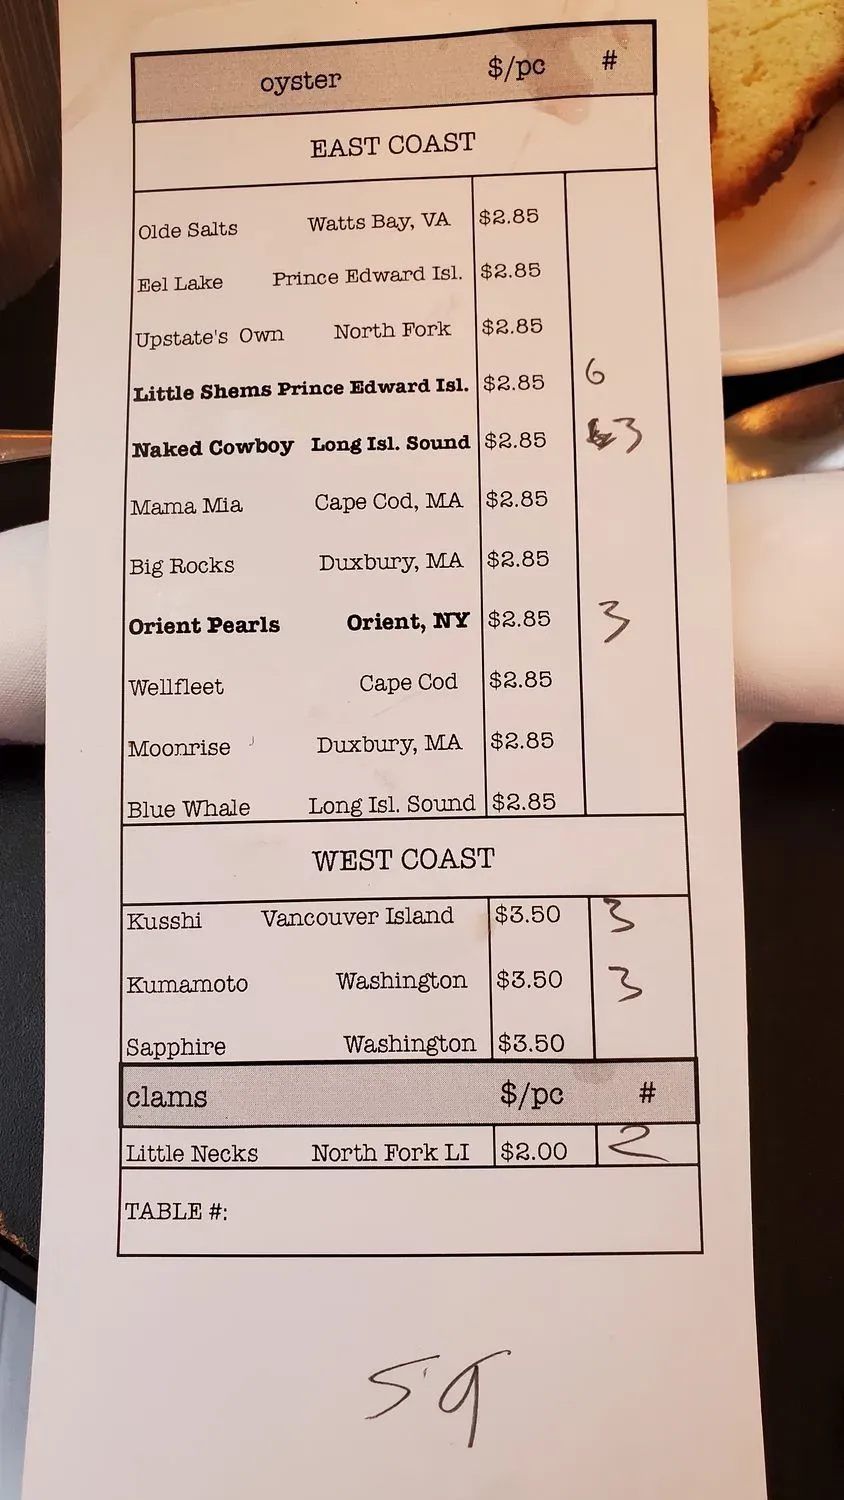 oyster $/pc #
EAST COAST
Olde Salts Watts Bay, VA $2.85
Eel Lake Prince Edward Isl. $2.85
Upstate's Own North Fork $2.85
Little Shems Prince Edward Isl. $2.85 6
Naked Cowboy Long Isl. Sound $2.85 3
Mama Mia Cape Cod, MA $2.85
Big Rocks Duxbury, MA $2.85
Orient Pearls Orient, NY $2.85 3
Wellfleet Cape Cod $2.85
Moonrise Duxbury, MA $2.85
Blue Whale Long Isl. Sound $2.85
WEST COAST
Kusshi Vancouver Island $3.50 3
Kumamoto Washington $3.50 3
Sapphire Washington $3.50
clams $/pc #
Little Necks North Fork LI $2.00 2
TABLE #: